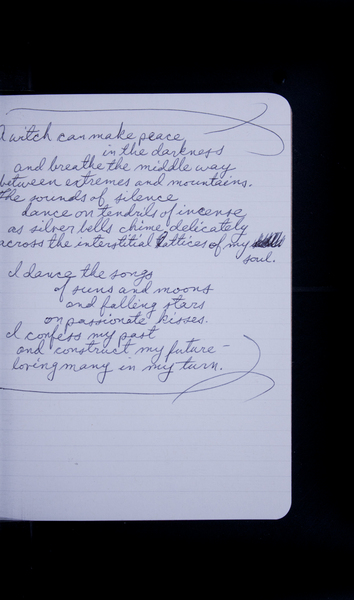 A witch can make peace
in the darkness
and breathe the middle way
between extremes and mountains.
The sounds of silence
dance on tendrils of incense
as silver bells chime delicately
across the interstitial lattices of my
soul.
I dance the songs
of suns and moons
and falling stars
on passionate kisses.
I confess my past
and construct my future –
loving many in my turn.